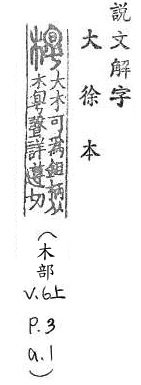 說文解字
大徐本
大木可為鉏柄从
木聲詳遵切
(木部
v.6上
p.3
a.1)